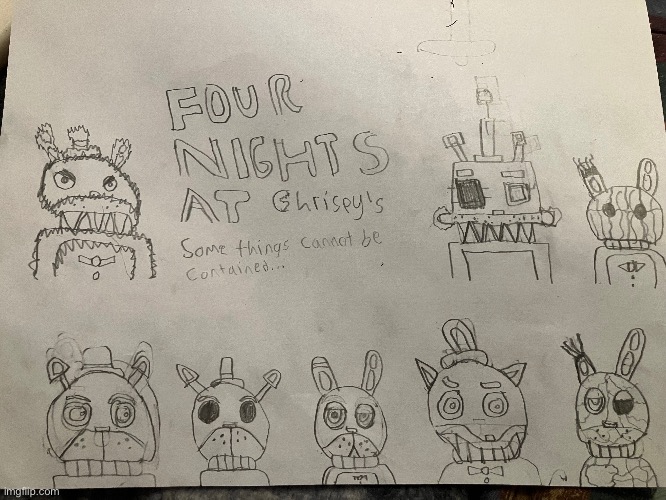 FOUR
NIGHTS
AT Chrispy's
Some things cannot be
contained...
imgflip.com